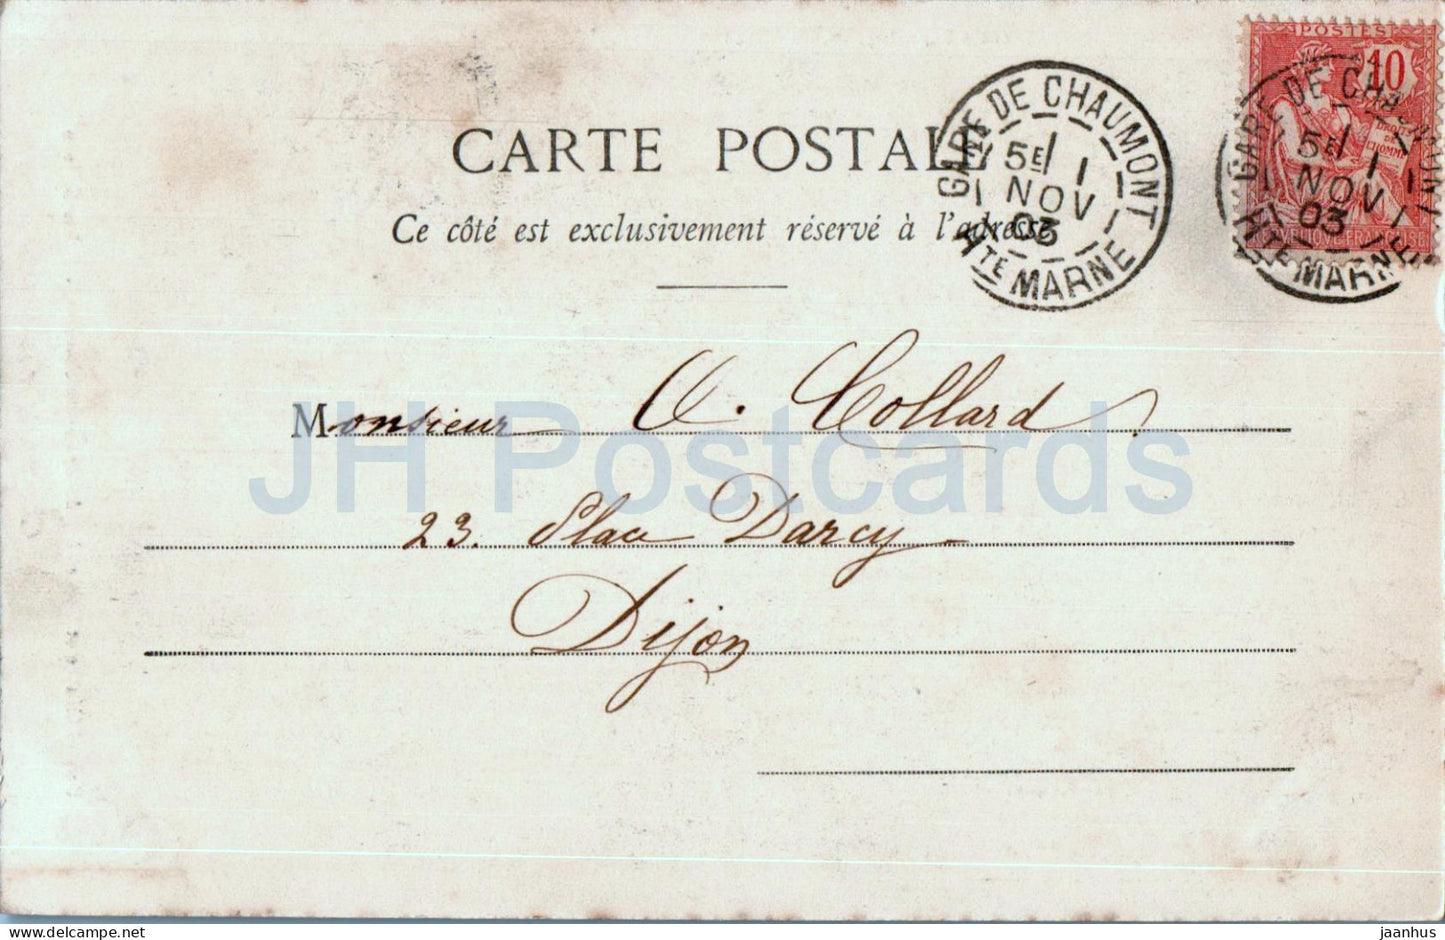 POSTES
10
DROITS
DE
L'HOMME
GARE DE CHAUMONT
5E 1
NOV
03
HTE MARNE
GARE DE CHAUMONT
5E 1
NOV
03
HTE MARNE
CARTE POSTALE
Ce côté est exclusivement réservé à l'adresse
Monsieur Collard
23. Place Darcy
Dijon
JH Postcards
delcampe.net
jaanhus